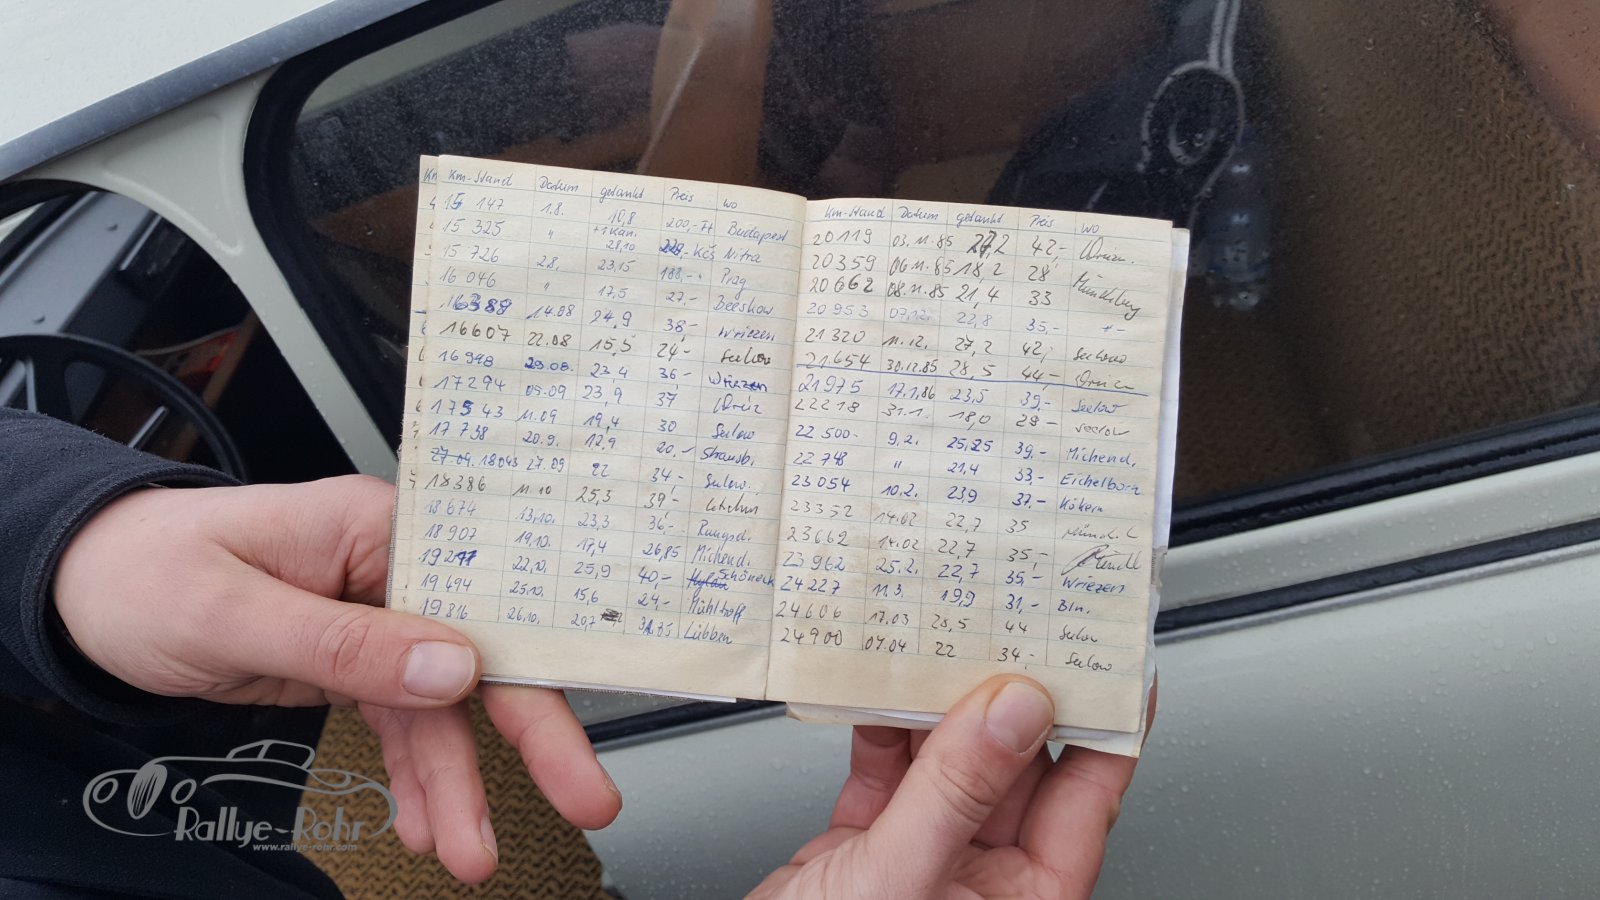 Km-Stand Datum getankt Preis wo
15 147 1.8. 10,8 200,-Ft Budapest
15 325 " +1 Kan. 28,10 Kčs Nitra
15 726 2.8. 23,15 188,- Prag
16 046 " 17,5 27,- Beeskow
16389 14.08 24,9 38,- Wriezen
16607 22.08 15,5 24,- Seelow
16998 29.08. 23,4 36,- Wriezen
17294 05.09 23,9 37
17543 11.09 19,4 30 Seelow
17 738 20.9. 12,9 20,- Strausb.
27.09. 18043 27.09 22 34,- Seelow.
18386 11.10 25,3 39,-
18 674 13.10. 23,3 36,- Rangsd.
18 907 19.10. 17,4 26,85 Michend.
19277 22.10. 25,9 40,- Schöneck
19 494 25.10. 15,6 24,- Mühltroff
19 816 26.10. 20,7 Lübben
Km-Stand Datum getankt Preis wo
20119 03.11.85 27,2 42,-
20359 06.11.85 18,2 28 Müncheberg
20662 08.11.85 21,4 33
20953 07.12. 22,8 35,- -"-
21320 11.12. 27,2 42,- Seelow
21.654 30.12.85 28,5 44,-
21975 17.1.86 23,5 39,- Seelow
22218 31.1. 18,0 29- Seelow
22 500- 9.2. 25,25 39,- Michend.
22 748 " 21,4 33,- Eichelborn
23054 10.2. 23,9 37,- Köckern
23352 14.02 22,7 35
23662 14.02 22,7 35,-
23962 25.2. 22,7 35,- Wriezen
24227 11.3. 19,9 31,- Bln.
24606 17.03 28,5 44 Seelow
24900 07.04 22 34,- Seelow
Rallye-Rohr
www.rallye-rohr.com